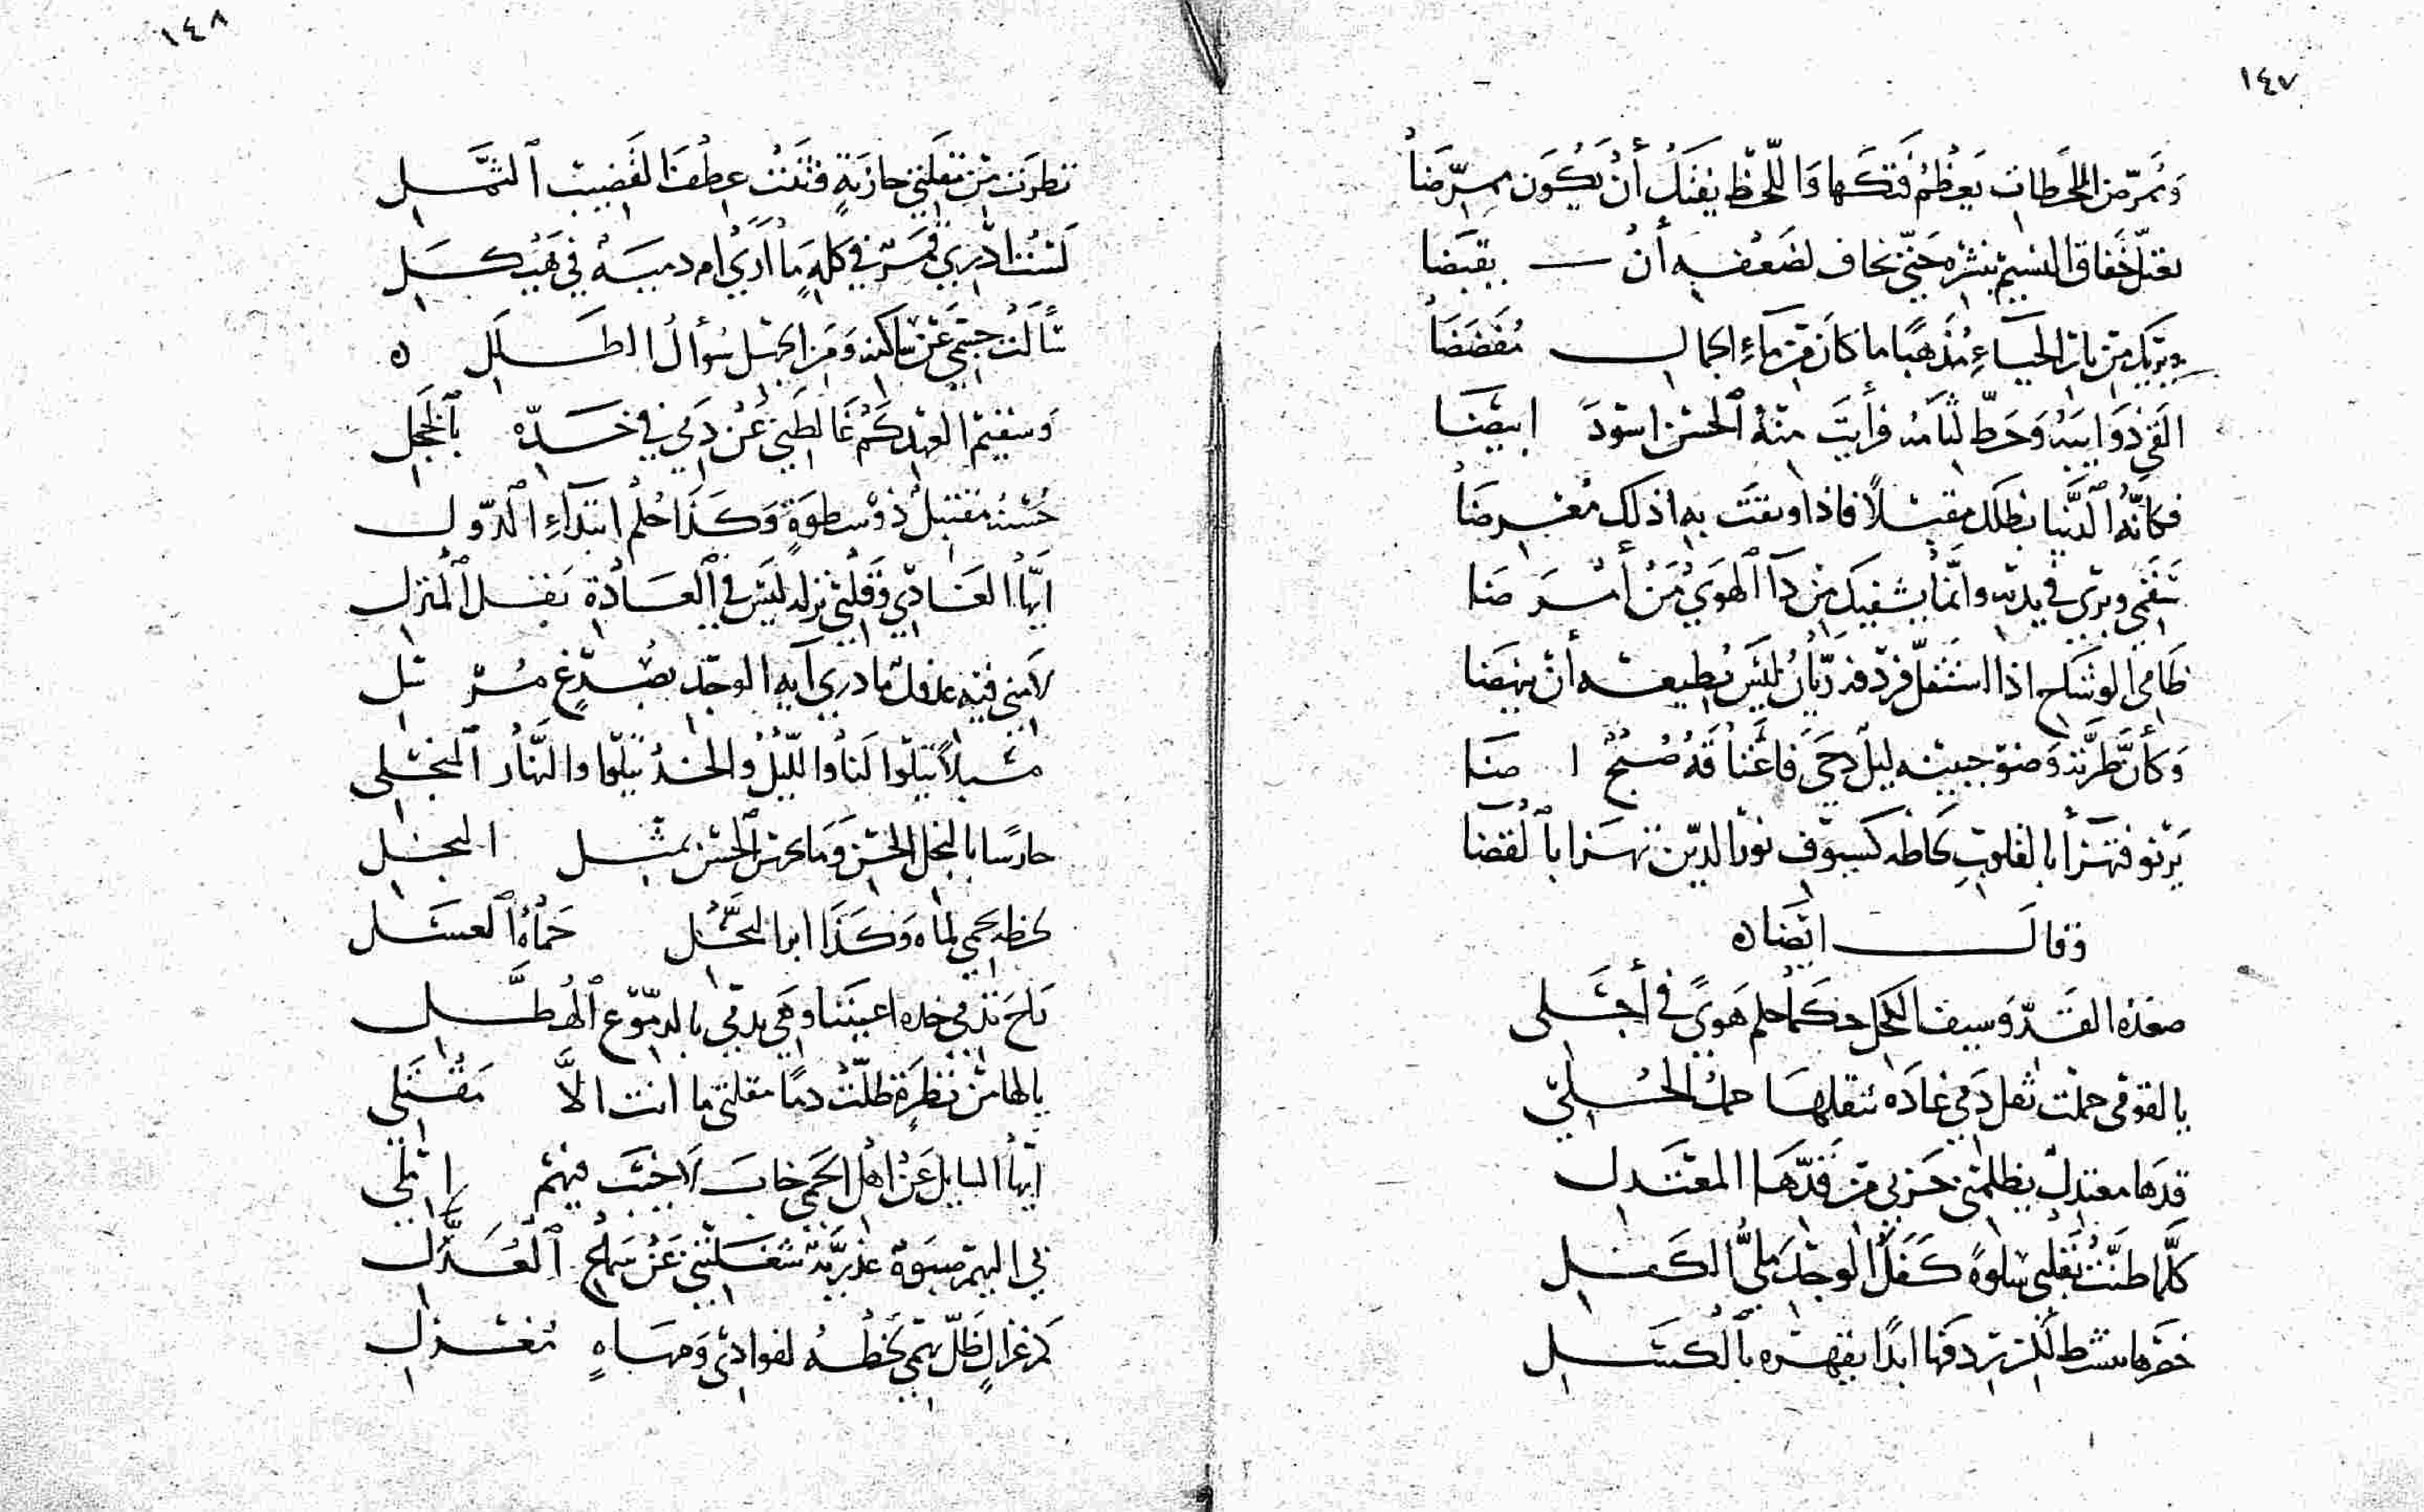 ١٤٧
وَمُمَرَّضِ اللحَظاتِ يَعظُمُ فَتكَها وَاللّحظ يقتل أنْ يَكُون ممرّضَا
خفاق النسيم بنشره حتّي يخاف لضعفه أنْ يقبَضَا
ويريك من نار الحيَاءِ مُذهبًا ما كانَ من مَاءِ الجمال مُفَضّضَا
القي ذوَايبَهُ وَحَطّ لثامَه فرأيتَ منهُ ٱلحسن اسودَ ابيضَا
فكأنّه ٱلدنيا مقبلًا فاذا وثقتَ به اذلك معرضَا
تَشفي وتبري في يديه وانّما يشفيك من دآ ٱلهوي مَنْ أمْرَضَا
ظامي الوشاح اذا استقلّ فردفه ريّان ليْسَ يُطيعه أن ينهضَا
وَكأنّ طرّته وَضوّ جبينه ليلٌ دجَي فَاعْتاقهُ صُبْحٌ اضَا
يَرنو فتهزأ بالقلوبِ لحاظه كسيوف نور الدّين تهزا بٱلقضَا
وقالَ ايضًا ه
صعدة القَدّ وَسيف الكَحل حكما حلم هَويً في أجَلي
يالقومي حملت ثقل دَمي غادَة يثقلهَا حمل الحُليّ
قدهَا معتدلٌ يظلمني حَزني من قَدّهَا المعتَدل
كلّما ظنّتْ بقلبي سَلوةً كَفَلَ الوجدَ مليُّ الكَفَل
خصْرها ردفها ابدًا يقهره بٱلكسَل
١٤٨
نظرَت من مقلتي جازيةٍ فثنت عِطف القَضيب ٱلثمَل
لَستُ ادري قمَرٌ في كلهٍ مَا أرَي ام دميَةٌ في هَيكَل
سَألتْ صحبتي عَن سَاكنه وَمن الجهل سُؤالُ الطَلَل ه
وَسقيم العهدِ كَمْ غالطَني عَن دَمي في خَدّه بٱلخَجل
حُسْنه مقتبلٌ ذو سطوَةٍ وَكَذَا حُلم ابتدآءِ ٱلدّول
ايّها العَادي وَقلبي نزله ليْسَ في ٱلعَادَةِ نقل ٱلمنزل
لامني فيه عذولٌ ما دري آيه الوجد بصُدغٍ مُرْسَل
مُسبلًا يتلوا لنا والليل والخدُ يتلوا والنّهار ٱلمنجَلي
حارسًا بالنجل الحسنَ وَما حرسَ ٱلحسْن بمثل النجل
لحظه يحمي لماه وَكذَا ابر النحْل حمَاةُ ٱلعسَل
جَرحَتْ في خده اعيننا وهي تدمَي بالدموع ٱلهطّل
يالها من نظرةٍ طلّتْ دمًا مقلتي ما انت الاّ مَقْتَلي
ايّها السايل عَنْ اهْل الحمَي خابَ لا خبتَ فيهمُ املي
لي اليهم صبوَة عذريّة شغلتني عَنْ سَماع ٱلعُذّل
كم غزالٍ ظلّ يَرمي لحْظُهُ لفوادي وَمهاهٍ مُغْزل